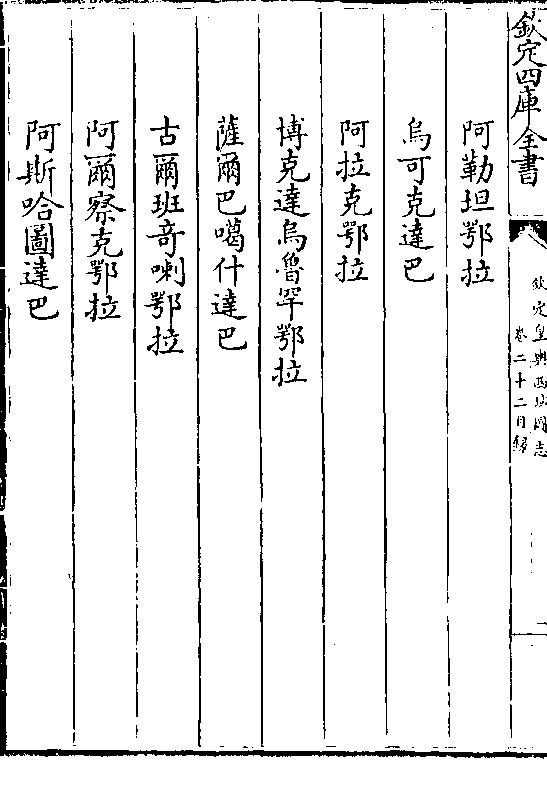 欽定四庫全書
欽定皇輿西域圖志
卷二十二目錄
二
阿勒坦鄂拉
烏可克達巴
阿拉克鄂拉
博克達烏魯罕鄂拉
薩爾巴噶什達巴
古爾班奇喇鄂拉
阿爾察克鄂拉
阿斯哈圖達巴